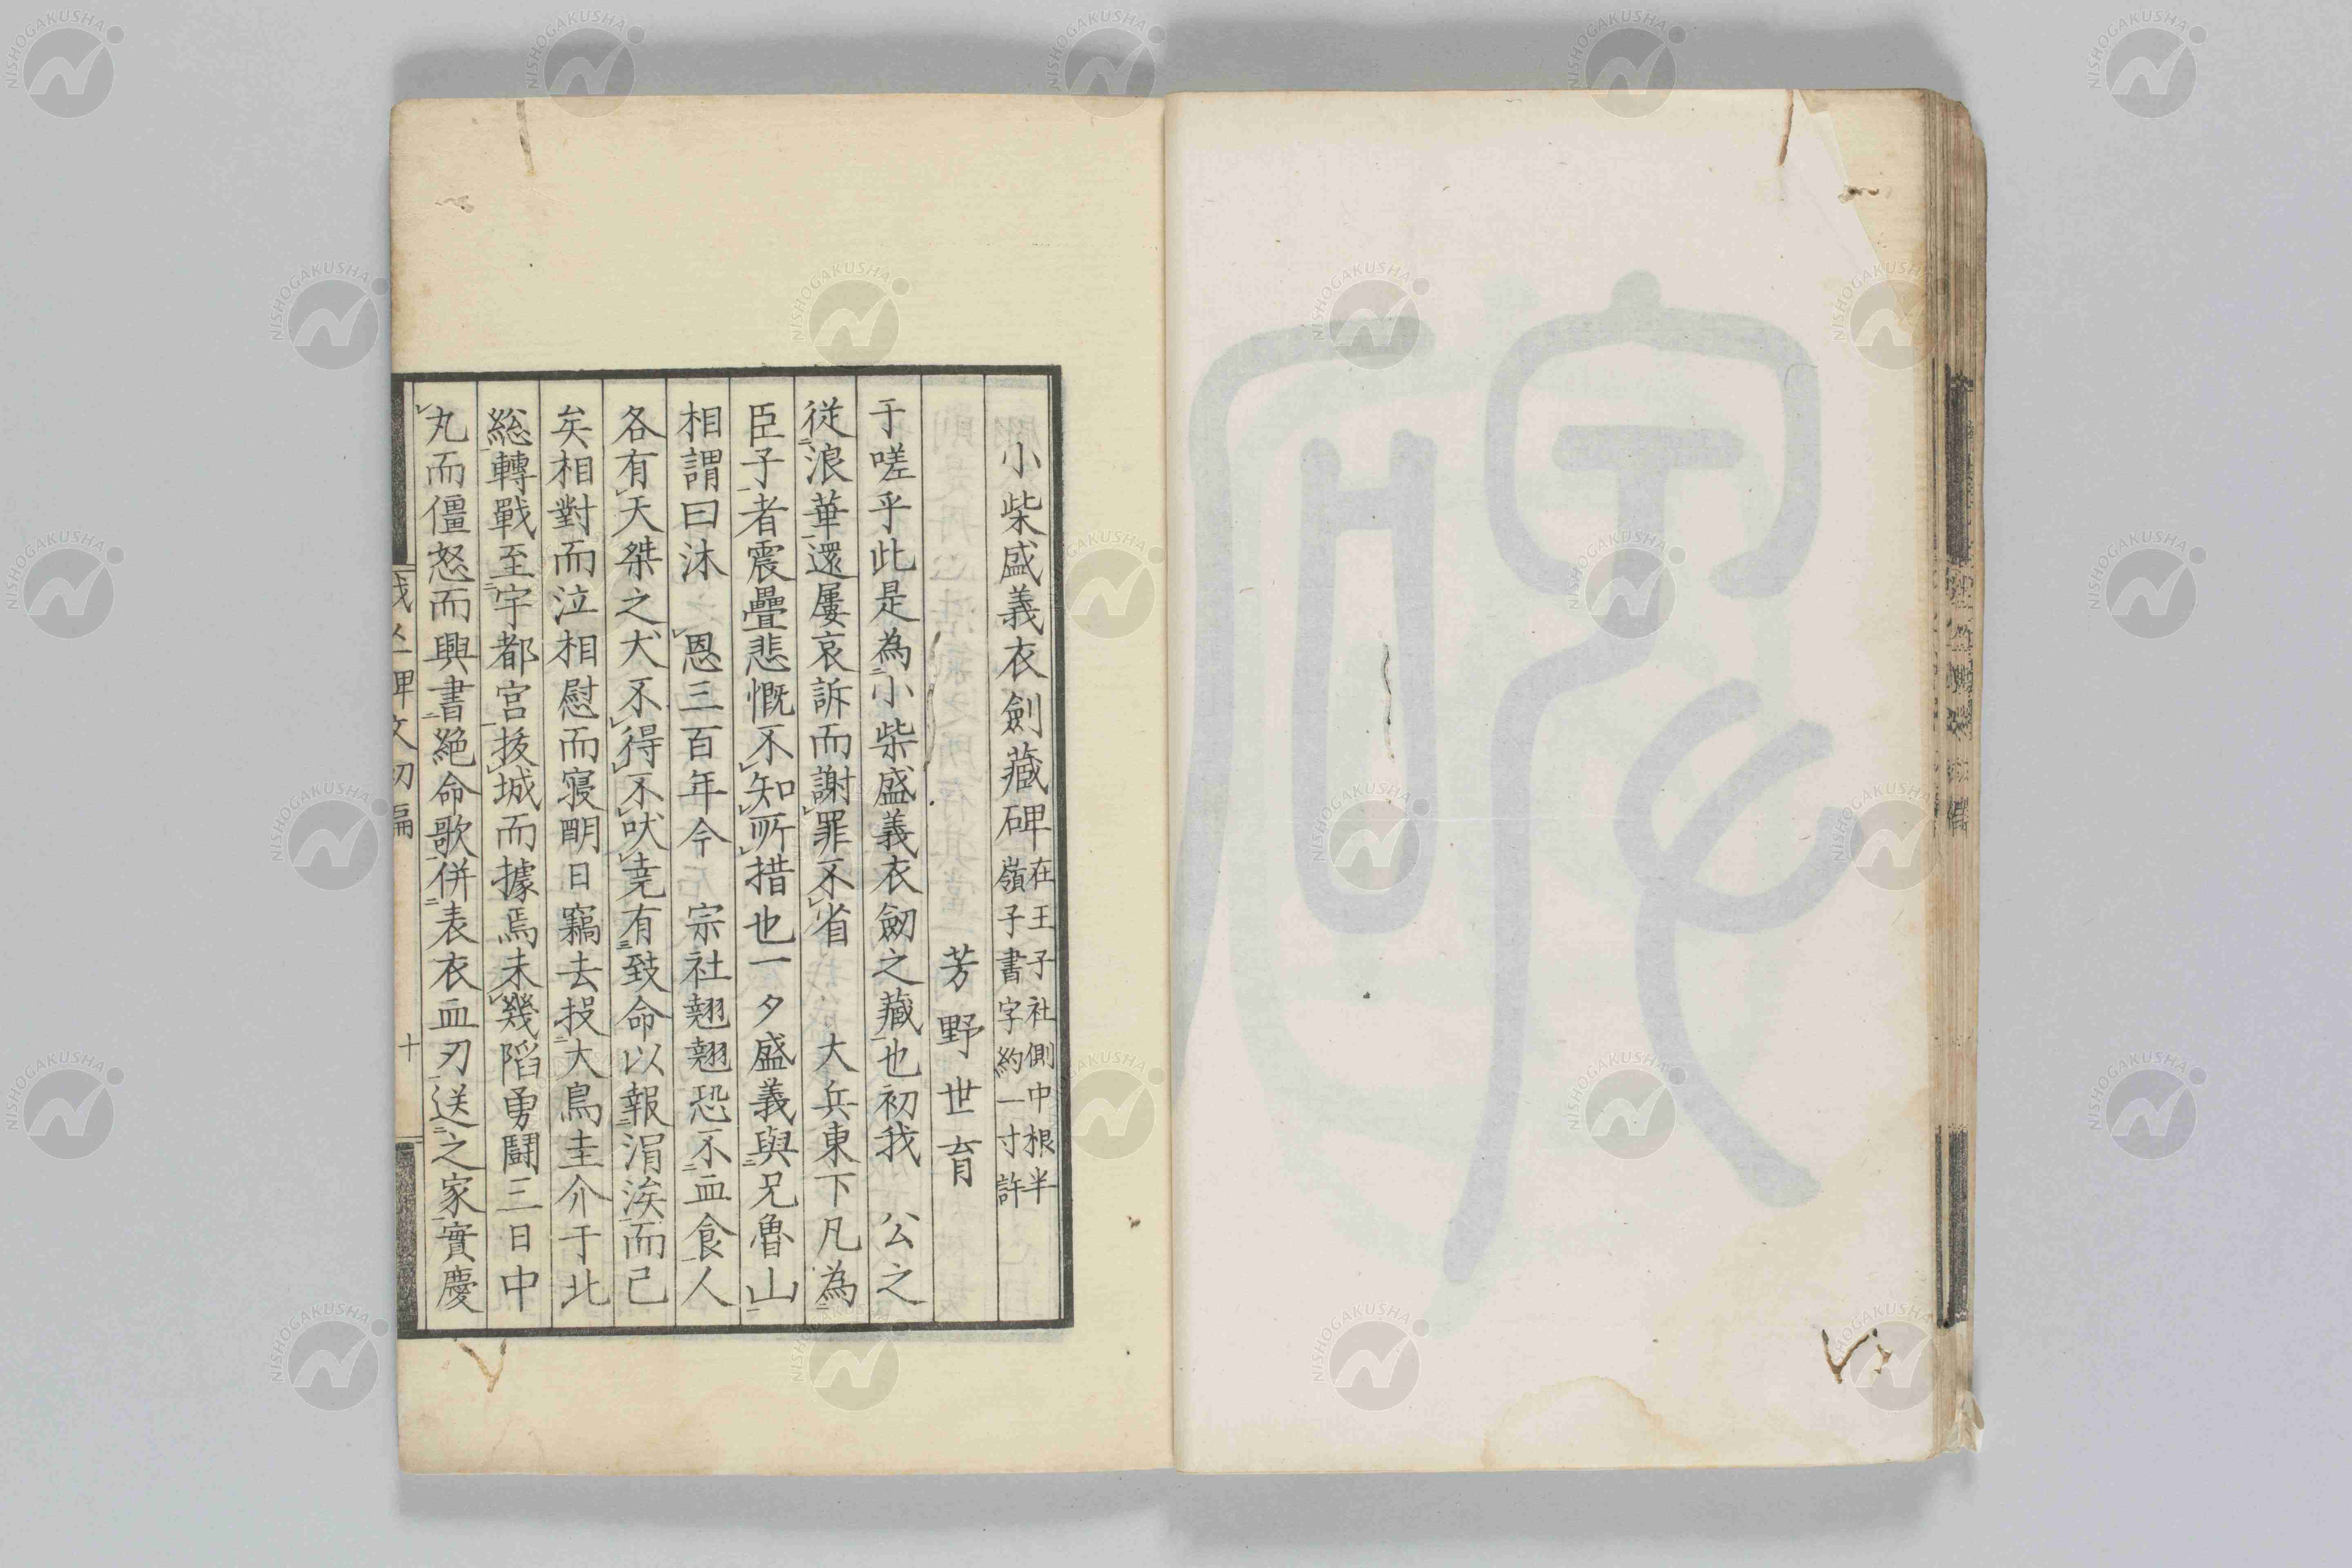 小柴盛義衣劍藏碑
在王子社側中根半
嶺子書字約一寸許
芳野世育
于嗟乎此是為小柴盛義衣劒之藏也初我　公之
従浪華還屢哀訴而謝罪不省　大兵東下凡為
臣子者震疊悲慨不知所措也一夕盛義與兄魯山
相謂曰沐　恩三百年今　宗社翹翹恐不血食人
各有天桀之犬不得不吠堯有致命以報涓涘而已
矣相對而泣相慰而寝朙日竊去投大鳥圭介于北
総轉戰至宇都宮拔城而據焉未幾陷勇鬪三日中
丸而僵怒而興書絶命歌併表衣血刃送之家實慶
碑文初編
十
NISHOGAKUSHA